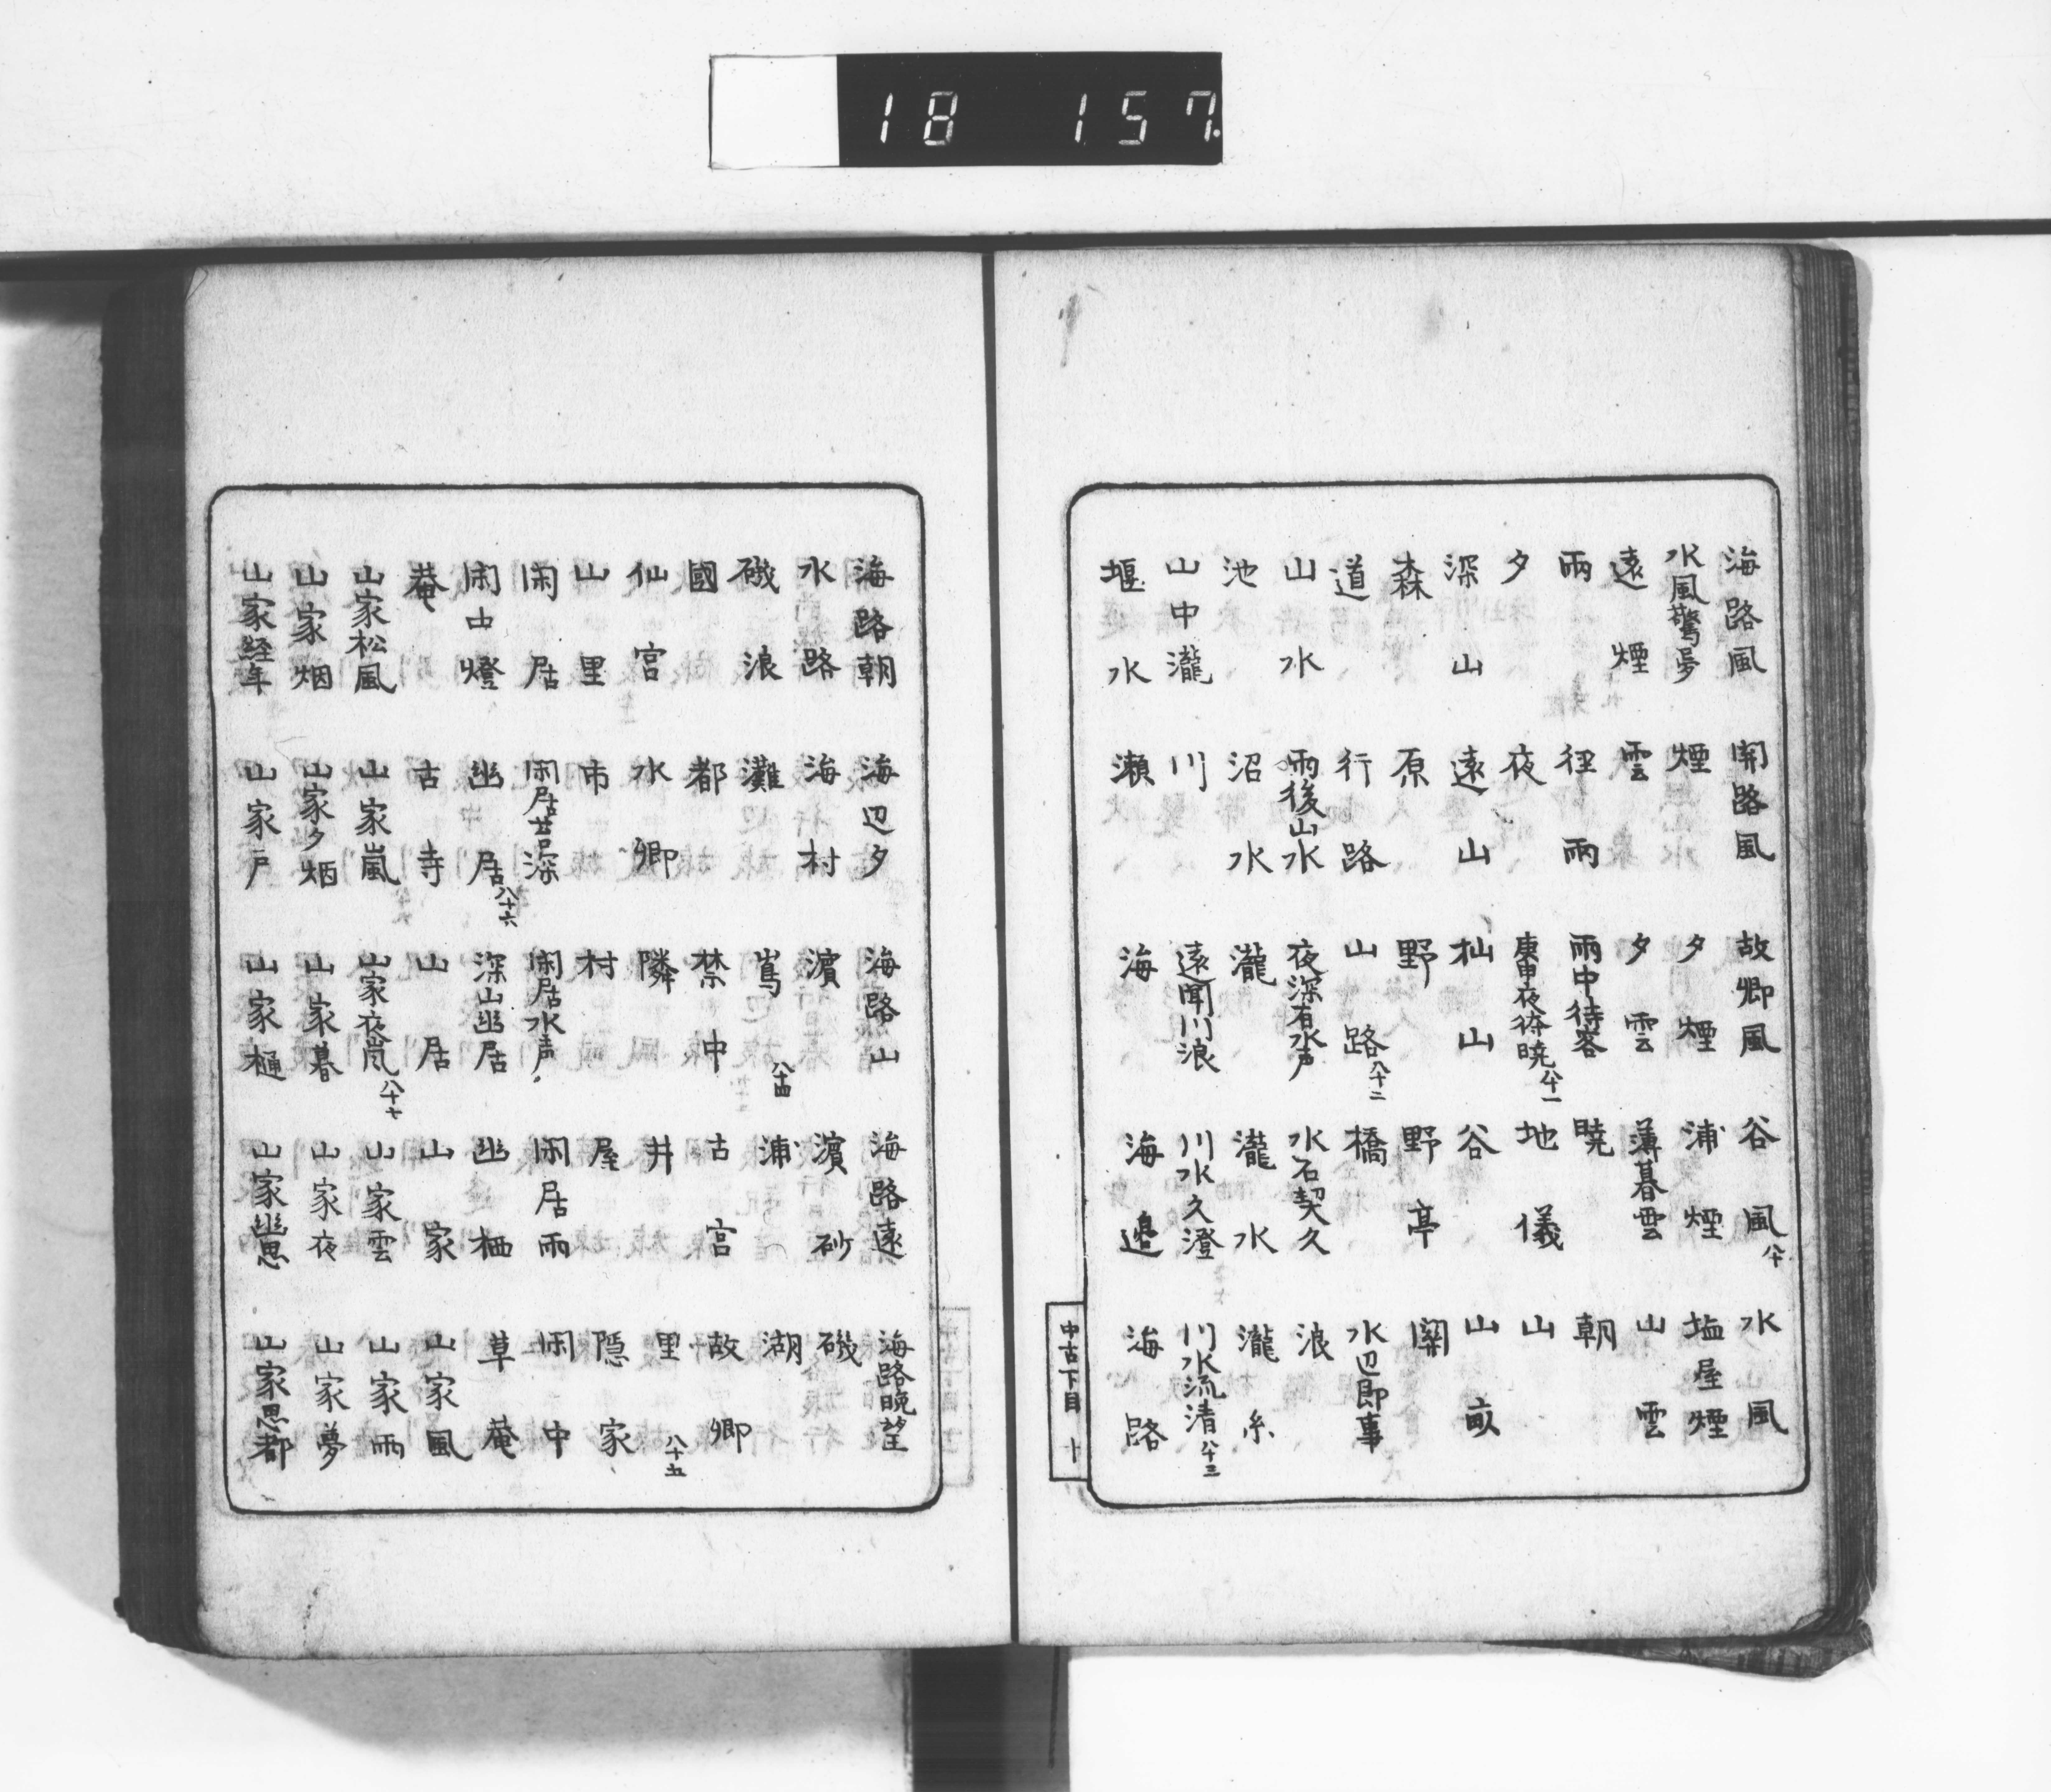 18 157
海路風 関路風 故郷風 谷風八十 水風
水風驚夢 煙 夕煙 浦煙 塩屋煙
遠煙 雲 夕雲 薄暮雲 山雲
雨 径雨 雨中待客 暁 朝
夕 夜 庚申夜待暁八十一 地儀 山
深山 遠山 杣山 谷 山畝
森 原 野 野亭 関
道 行路 山路八十二 橋 水辺即事
山水 雨後山水 夜深有水声 水石契久 浪
池 沼水 瀧 瀧水 瀧糸
山中瀧 川 遠聞川浪 川水久澄 川水流清八十三
堰水 瀬 海 海邉 海路
中古下目 十
海路朝 海辺夕 海路山 海路遠 海路晩望
水路 海村 濱 濱砂 磯
磯浪 灘 嶌八十四 浦 湖
國 都 禁中 古宮 故郷
仙宮 水郷 隣 井 里八十五
山里 市 村 屋 隠家
閑居 閑居苔深 閑居水声 閑居雨 閑中
閑中燈 幽居八十六 深山幽居 幽栖 草菴
菴 古寺 山居 山家 山家風
山家松風 山家嵐 山家夜嵐八十七 山家雲 山家雨
山家烟 山家夕烟 山家暮 山家夜 山家夢
山家経年 山家戸 山家樋 山家幽思 山家思都